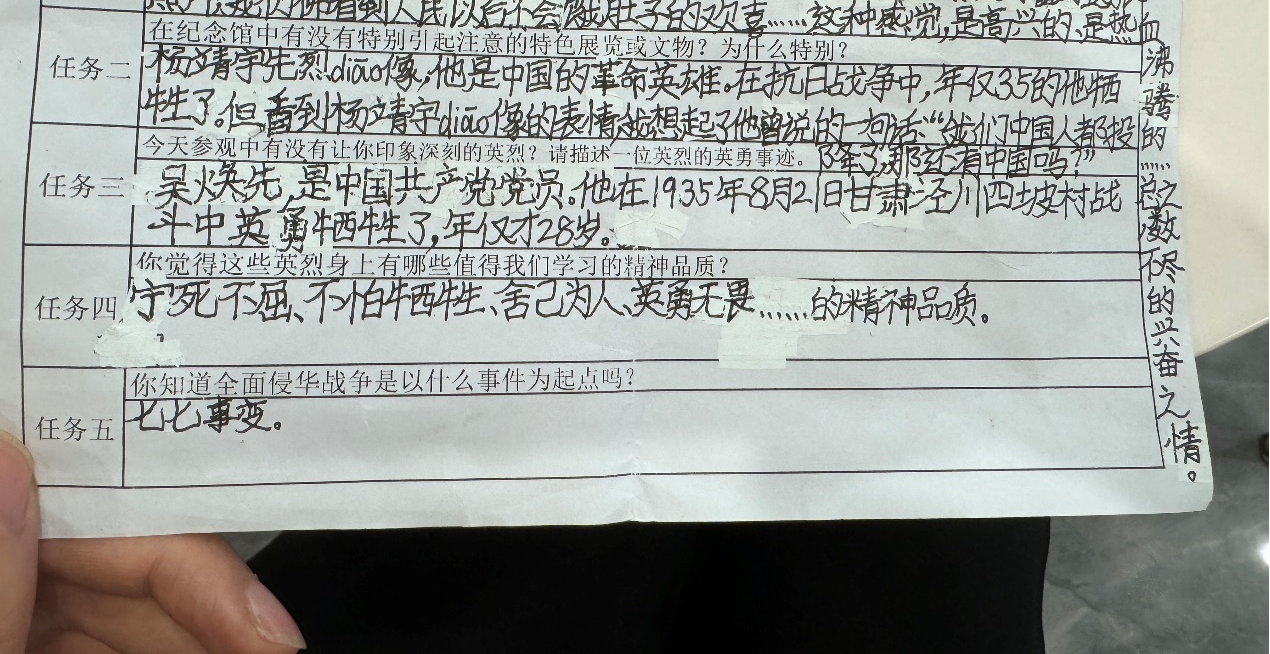 看到人民以后不会饿肚子的欢喜……这种感觉,是高兴的、是热血
沸腾的……总之数不尽的兴奋之情。
在纪念馆中有没有特别引起注意的特色展览或文物?为什么特别?
任务二
杨靖宇先烈diāo像,他是中国的革命英雄。在抗日战争中,年仅35的他牺
牲了。但看到杨靖宇diāo像的表情我想起了他曾说的一句话:“我们中国人都投
降了,那还有中国吗?”
今天参观中有没有让你印象深刻的英烈?请描述一位英烈的英勇事迹。
任务三
吴焕先,是中国共产党党员。他在1935年8月21日甘肃泾川四坡村战
斗中英勇牺牲了,年仅才28岁。
你觉得这些英烈身上有哪些值得我们学习的精神品质?
任务四
宁死不屈、不怕牺牲、舍己为人、英勇无畏……的精神品质。
你知道全面侵华战争是以什么事件为起点吗?
任务五
七七事变。